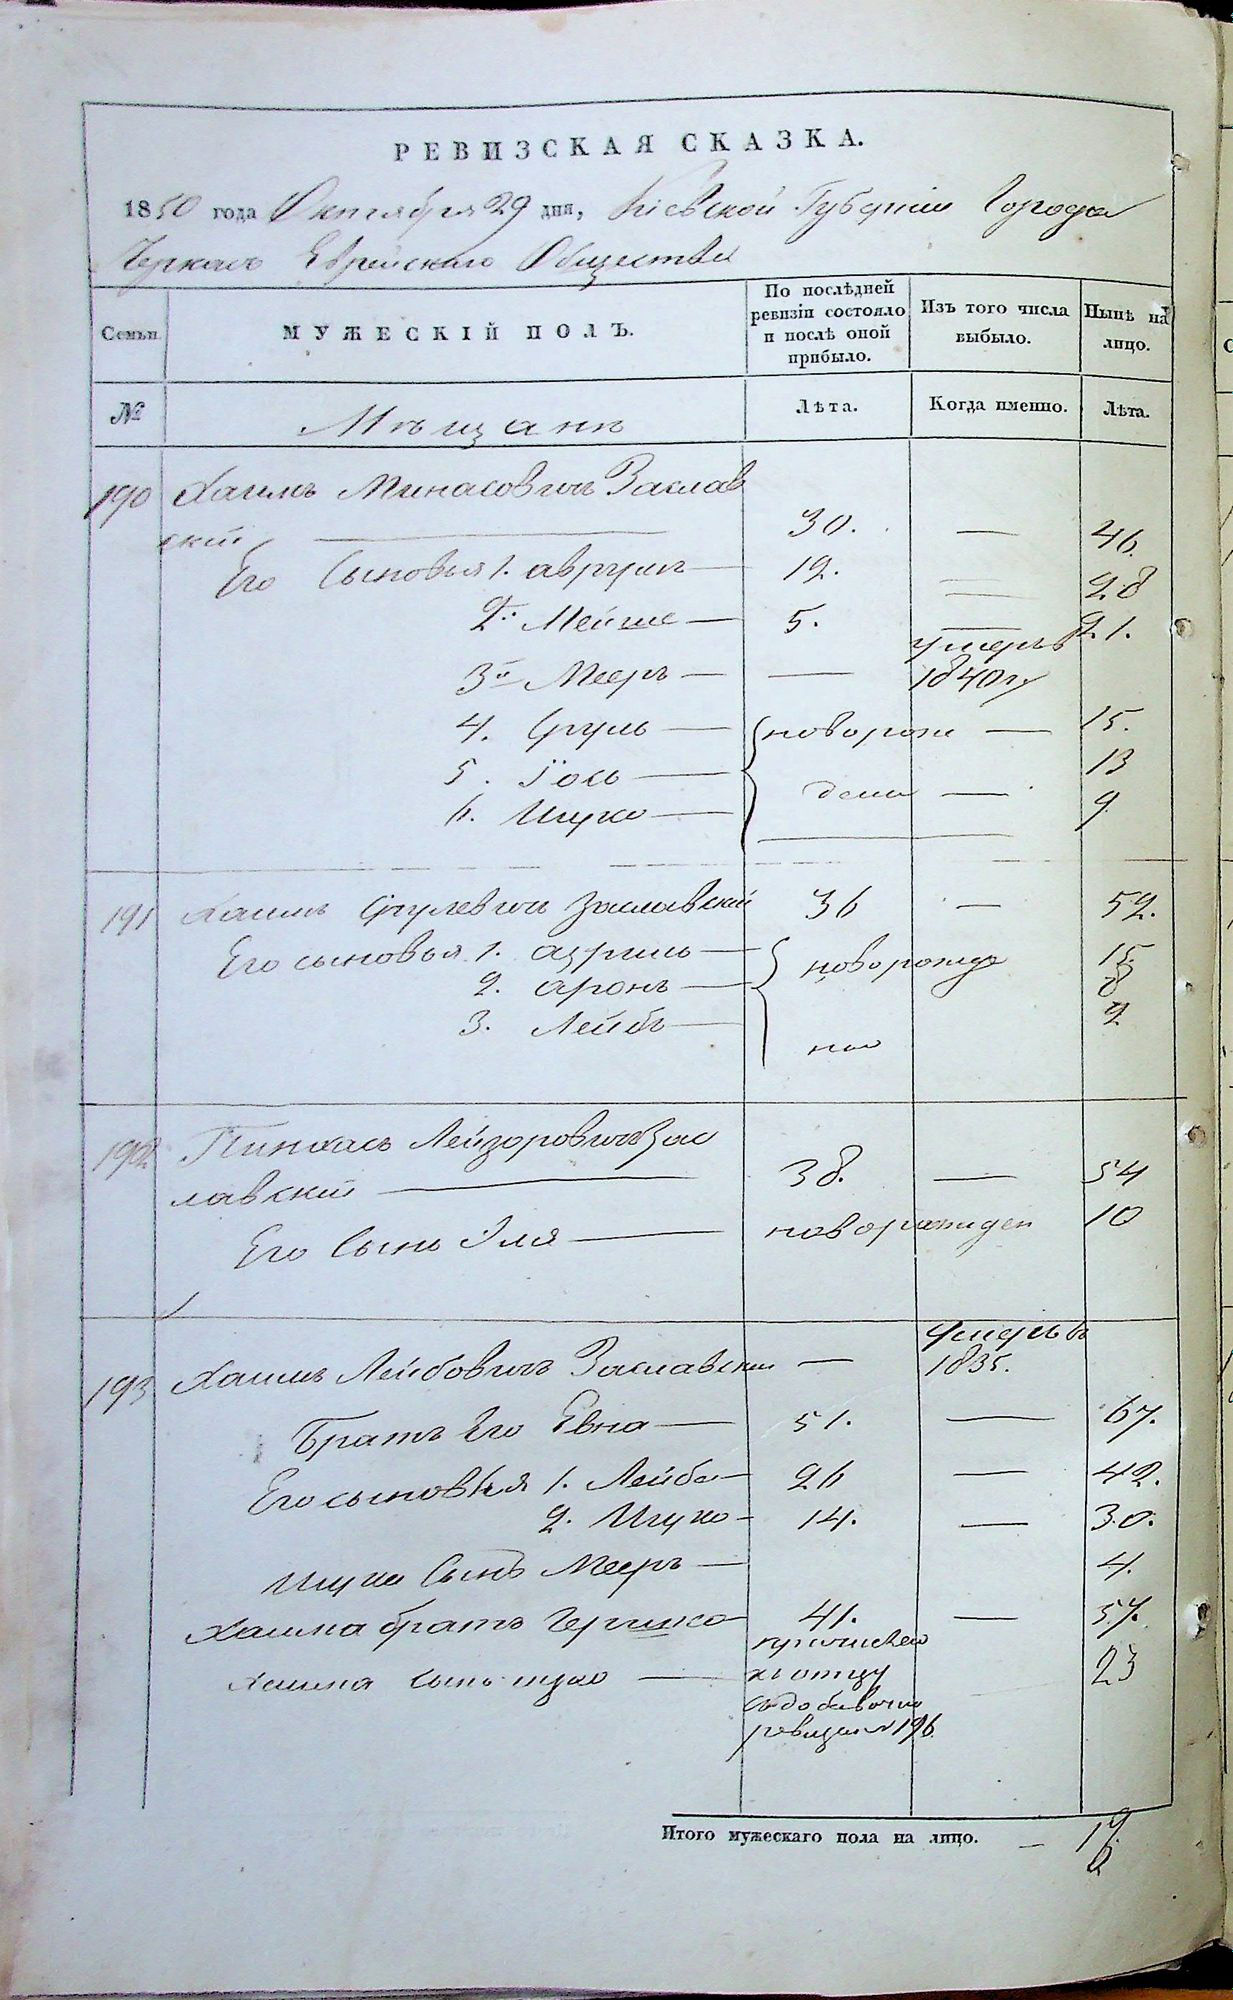 РЕВИЗСКАЯ СКАЗКА.
1850 года Октября 29 дня, Кіевской Губерніи Города
Черкасъ Еврейскаго Общества
Семьи
МУЖЕСКІЙ ПОЛЪ.
По послѣдней
ревизіи состояло
и послѣ оной
прибыло.
Изъ того числа
выбыло.
Нынѣ на
лицо.
№
Мѣщане
Лѣта.
Когда именно.
Лѣта.
190 Хаимъ Минасовичъ Заслав
скій — 30. — 46.
Его Сыновья 1. Аврумъ — 12. — 28
2й Мейше — 5. — 21.
3й Мееръ — — умеръ в
1840 гу
4. Сруль — новорож — 15.
5. Іось — 13
6. Ицко — дены — 9
191 Хаимъ Срулевичъ Заславскій 36 — 52.
Его сыновья 1. Азриль — новорожде 15
2. Аронъ — 8
3. Лейбъ — 2
ные
192 Пинхасъ Лейзоровичъ Зас
лавскій — 38. — 54
Его Сынъ Эля — новорожден 10
193 Хаимъ Лейбовичъ Заславскій — умеръ въ
1835.
Братъ Его Евна — 51. — 67.
Его сыновья 1. Лейба — 26 — 42.
2. Ицко — 14. — 30.
Ицка Сынъ Мееръ — 4.
Хаима братъ Гершко 41. — 57.
Хаима сынъ — причисленъ 23
къ отцу
съ добавочно
ревизіи № 196
Итого мужескаго пола на лицо. — 17